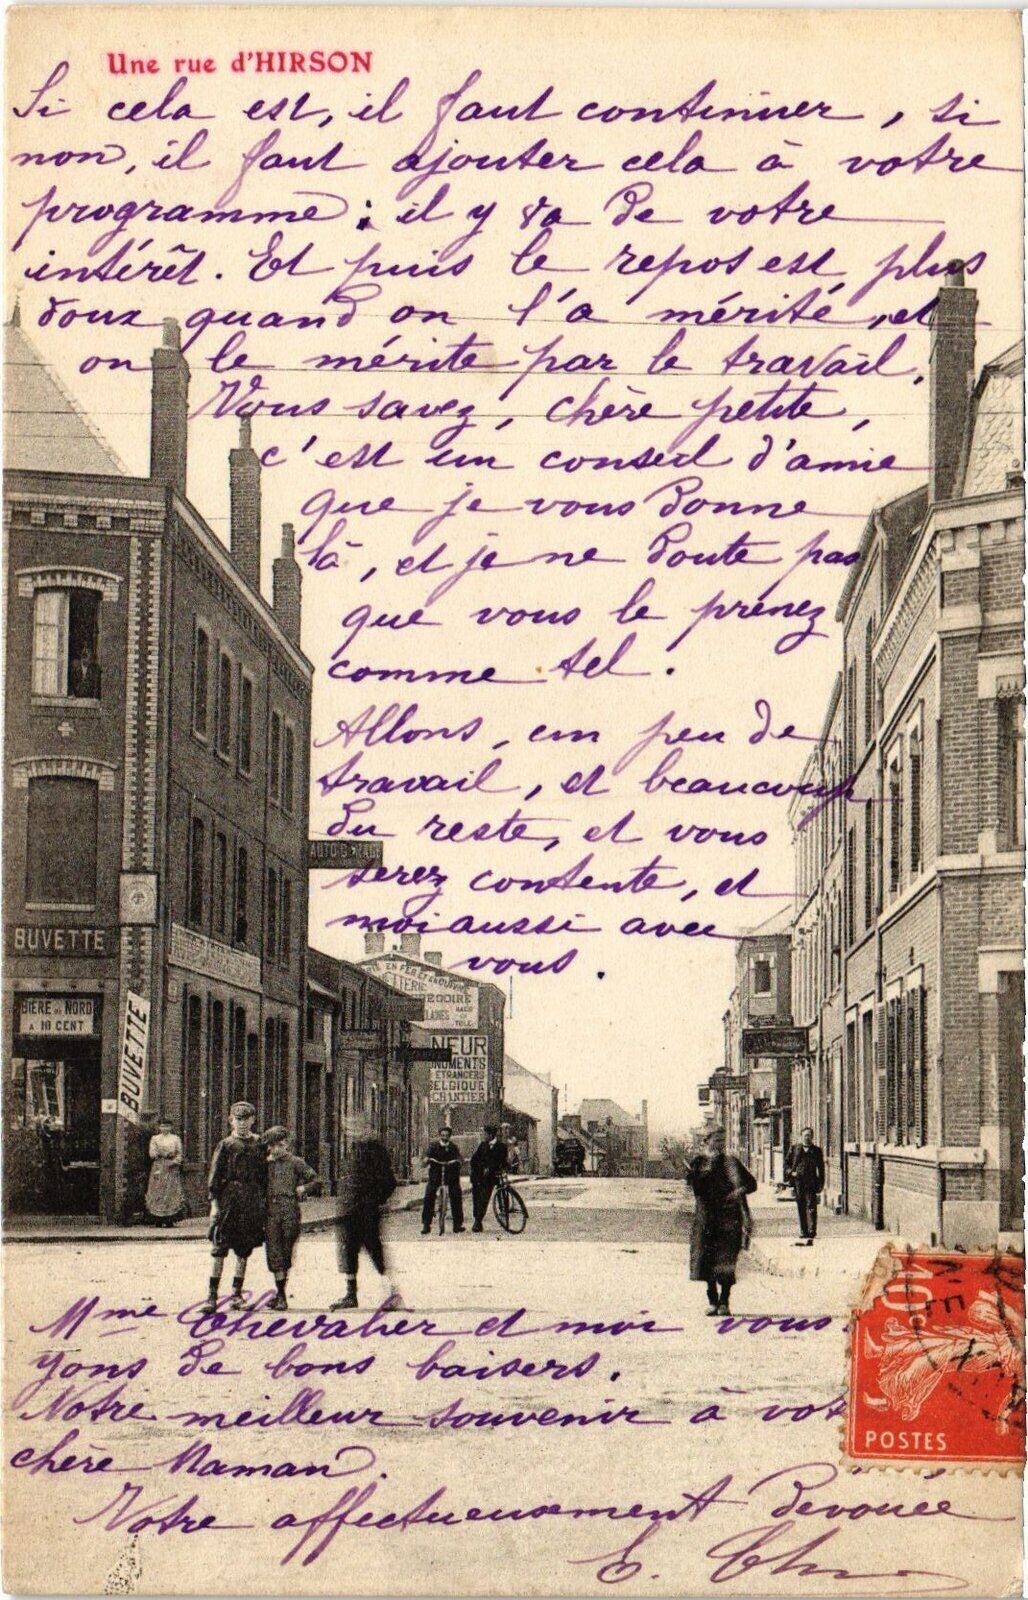 Une rue d'HIRSON
Si cela est, il faut continuer, si
non, il faut ajouter cela à votre
programme; il y va de votre
intérêt. Et puis le repos est plus
doux quand on l'a mérité, et
on le mérite par le travail.
Vous savez, chère petite,
c'est un conseil d'amie
que je vous donne
là, et je ne doute pas
que vous le prenez
comme tel.
Allons, un peu de
travail, et beaucoup
du reste, et vous
serez contente, et
moi aussi avec
vous.
BUVETTE
BIÈRE DU NORD
A 10 CENT
BUVETTE
NEUR
BELGIQUE
CHANTIER
Mme Chevalier et moi vous
yons de bons baisers.
Notre meilleur souvenir à vot
chère Maman.
Votre affectueusement dévouée
E.
10
POSTES